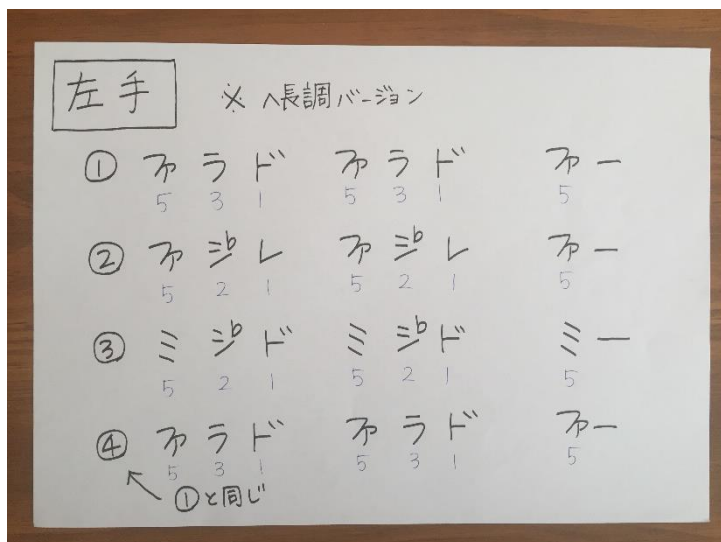 左手 ※ ヘ長調バージョン
① ファラド ファラド ファー
5 3 1 5 3 1 5
② ファシ♭レ ファシ♭レ ファー
5 2 1 5 2 1 5
③ ミシ♭ド ミシ♭ド ミー
5 2 1 5 2 1 5
④ ファラド ファラド ファー
5 3 1 5 3 1 5
①と同じ